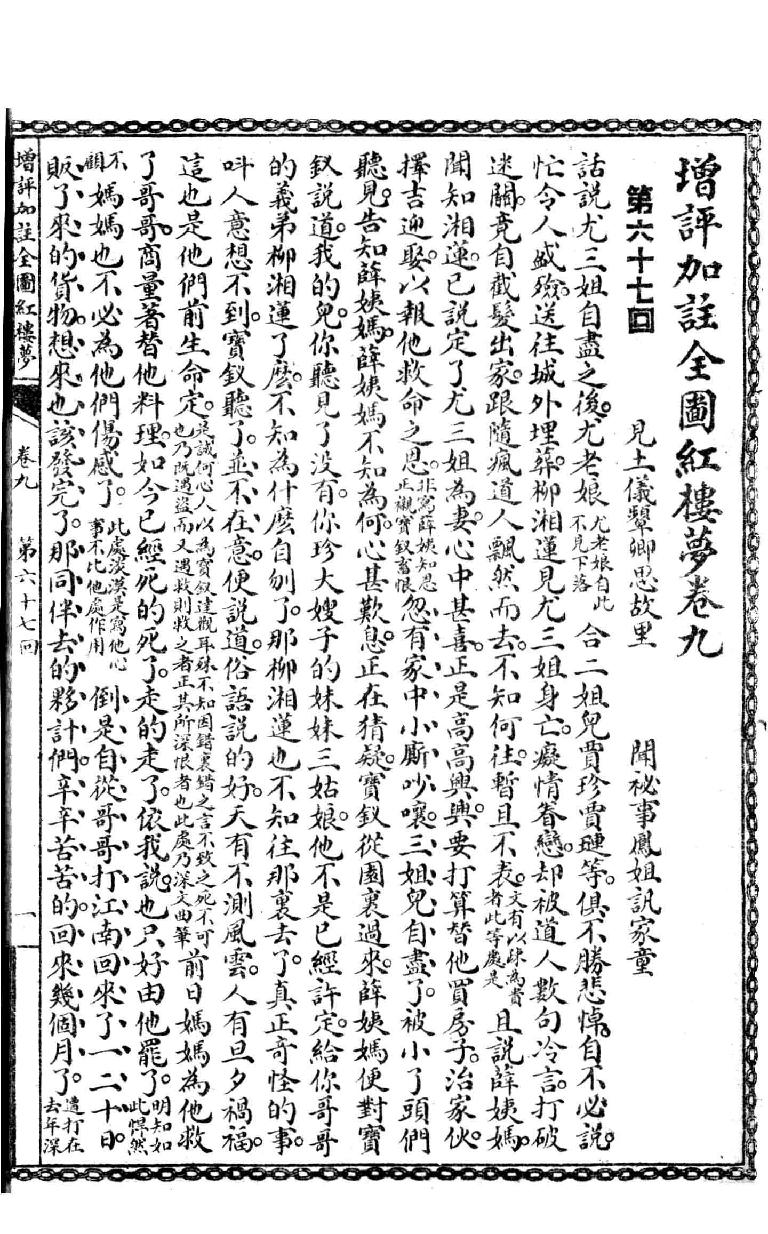 增評加註全圖紅樓夢卷九
第六十七回　見土儀顰卿思故里　聞祕事鳳姐訊家童
話說尤三姐自盡之後。尤老娘尤老娘自此不見下落合二姐兒賈珍賈璉等。俱不勝悲悼。自不必說。
忙令人盛殮。送往城外埋葬。柳湘蓮見尤三姐身亡。癡情眷戀。却被道人數句冷言。打破
迷關。竟自截髮出家。跟隨瘋道人飄然而去。不知何往。暫且不表。文有以疎為貴者此等處是且說薛姨媽。
聞知湘蓮。已說定了尤三姐為妻。心中甚喜。正是高高興興。要打算替他買房子。治家伙。
擇吉迎娶。以報他救命之恩。非寫薛姨知恩正襯寶釵畜恨忽有家中小廝吵嚷。三姐兒自盡了。被小丫頭們
聽見。告知薛姨媽。薛姨媽不知為何。心甚歎息。正在猜疑。寶釵從園裏過來。薛姨媽便對寶
釵說道。我的兒。你聽見了没有。你珍大嫂子的妹妹三姑娘。他不是已經許定給你哥哥
的義弟柳湘蓮了麽。不知為什麽自刎了。那柳湘蓮也不知往那裏去了。真正奇怪的事。
呌人意想不到。寶釵聽了。並不在意。便說道。俗語說的好。天有不測風雲。人有旦夕禍福。
這也是他們前生命定。是誠何心人以為寶釵達觀耳殊不知因錯裏錯之言不致之死不可也乃既遇盜而又遇救則救之者正其所深恨者也此處乃深文曲筆前日媽媽為他救
了哥哥。商量著替他料理。如今已經死的死了。走的走了。依我說。也只好由他罷了。明知如此悍然
不顧媽媽也不必為他們傷感了。此處淡漠是寫他心事不比他處作用倒是自從哥哥打江南回來了一二十日。
販了來的貨物。想來也該發完了。那同伴去的夥計們。辛辛苦苦的。回來幾個月了。遣打在去年深
增評加註全圖紅樓夢　卷九　第六十七回　一